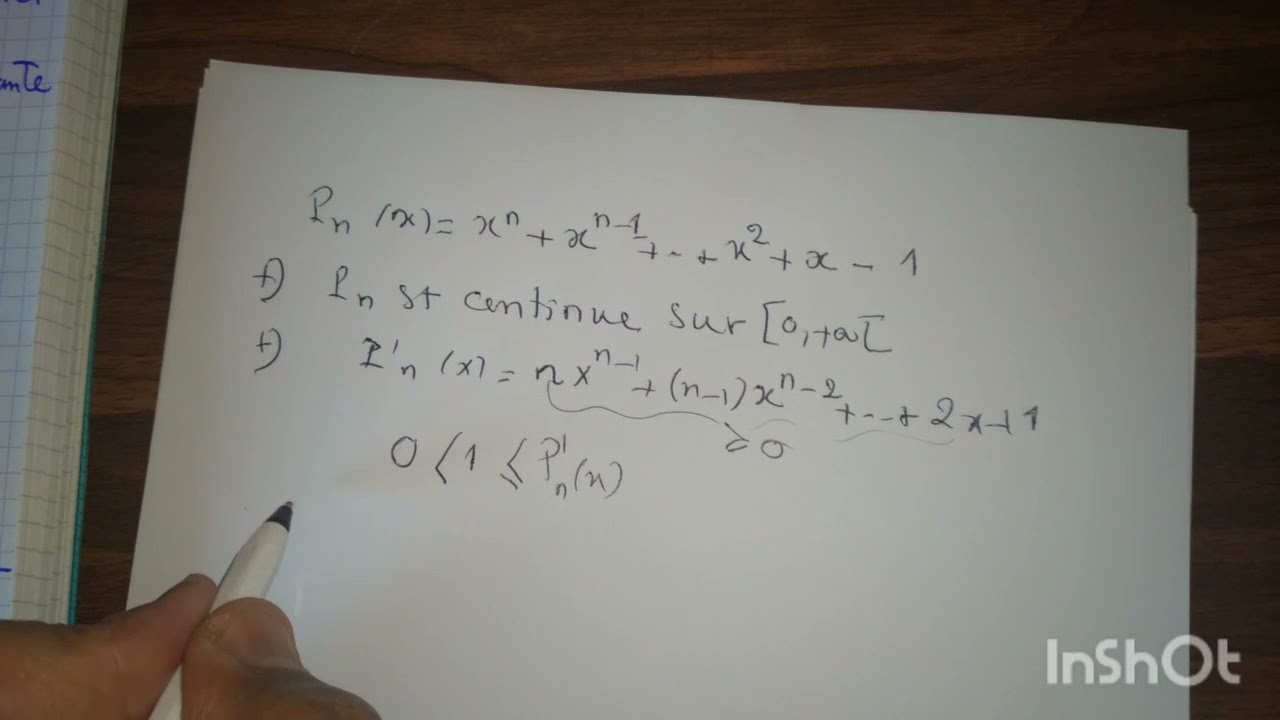 ante
Pn (x) = xⁿ + xⁿ⁻¹ + .. + x² + x - 1
+) Pn st continue sur [0, +∞[
+) P'n (x) = nxⁿ⁻¹ + (n-1)xⁿ⁻² + -- + 2x + 1
≥ 0
0 < 1 ≤ P'n(x)
InShOt